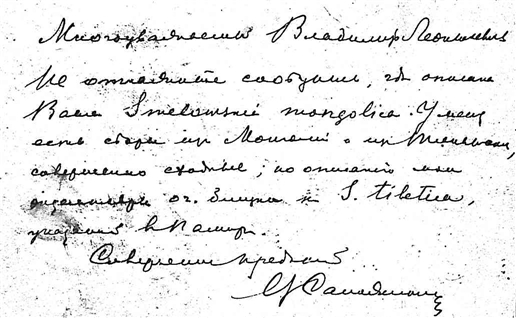 Многоуважаемый Владимир Леонтьевич
Не откажите сообщить, где описана
Ваша Smelowskia mongolica. У меня
есть сборы из Монголии и из
совершенно сходные; по описанию они
оч. близки к S. tibetica,
указанной
Совершенно преданный